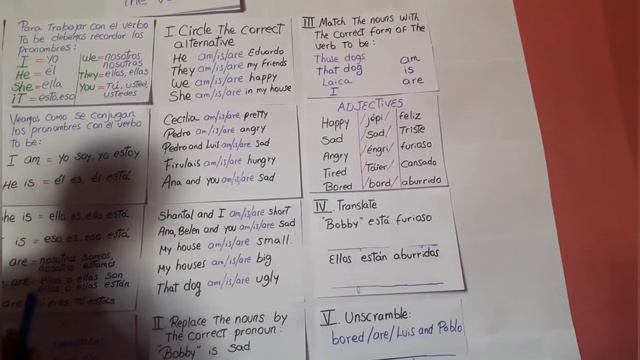 the verb
Para trabajar con el verbo
To be debemos recordar los
pronombres:
I = yo
He = él
She = ella
iT = esta, eso
we = nosotros
nosotras
They = ellos, ellas
You = Tú, usted,
ustedes
Veamos Como se conjugan
los pronombres con el verbo
To be:
I am = yo soy, yo estoy
He is = él es, él está
she is = ella es, ella está
is = eso es, eso está
are = nosotros somos,
nosotros estamos
are = ellos o ellas son
ellos o ellas están
are = eres Tú estás
I Circle The correct
alternative
He am/is/are Eduardo
They am/is/are my friends
We am/is/are happy
She am/is/are in my house
Cecilia am/is/are pretty
Pedro am/is/are angry
Pedro and Luis am/is/are sad
Firulais am/is/are hungry
Ana and you am/is/are sad
Shantal and I am/is/are short
Ana, Belen and you am/is/are sad
My house am/is/are small.
My houses am/is/are big
That dog am/is/are ugly
II Replace the nouns by
the correct pronoun:
"Bobby" is sad
III Match the nouns with
the correct form of the
verb to be:
Those dogs am
That dog is
Laica are
I
ADJECTIVES
Happy /jépi/ feliz
Sad /sad/ Triste
Angry /éngri/ furioso
Tired /Táier/ Cansado
Bored /bord/ aburrido
IV Translate
"Bobby" está furioso
Ellos están aburridos
V Unscramble:
bored/are/Luis and Pablo